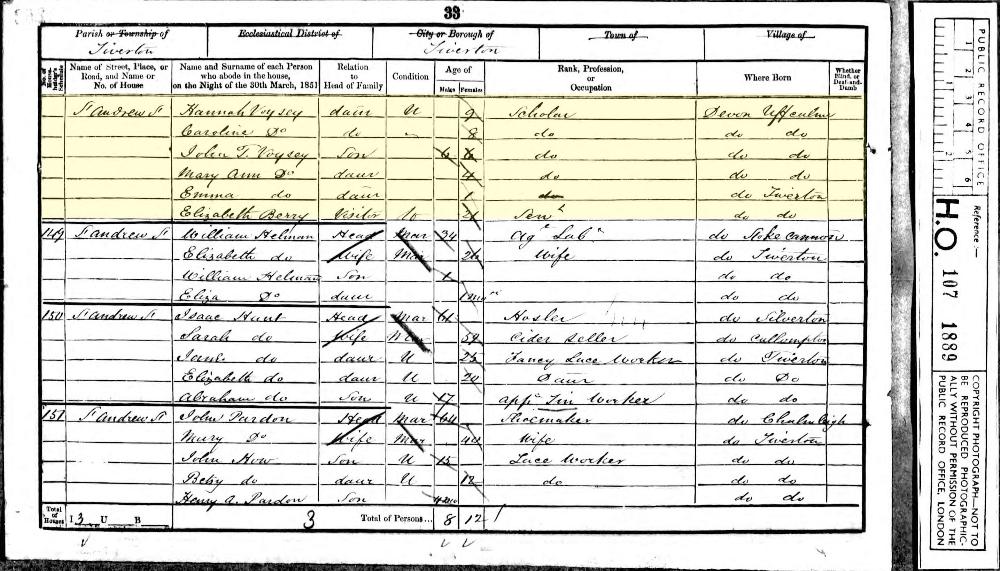 33
Parish or Township of Ecclesiastical District of City or Borough of Town of Village of
Tiverton Tiverton
No. of House-holder's Schedule Name of Street, Place, or Road, and Name or No. of House Name and Surname of each Person who abode in the house, on the Night of the 30th March, 1851 Relation to Head of Family Condition Age of Males Females Rank, Profession, or Occupation Where Born Whether Blind, or Deaf-and-Dumb
St Andrew St Hannah Voysey daur U 9 Scholar Devon Uffculme
Caroline Do do 8 do do do
John T. Voysey Son 6 6 do do do
Mary Ann Do daur 4 do do do
Emma do daur 1 do do Tiverton
Elizabeth Berry Visitor 21 Servt do do
149 St Andrew St William Helman Head Mar 34 Agl Labr do Stoke Cannon
Elizabeth do Wife Mar 26 Wife do Tiverton
William Helman Son 1 do do
Eliza Do daur 1 mo do do
150 St Andrew St Isaac Hunt Head Mar 61 Hosler do Silverton
Sarah do Wife Mar 59 Cider Seller do Cullompton
Jane do daur U 25 Fancy Lace Worker do Tiverton
Elizabeth do daur U 20 Daur do Do
Abraham do Son U 17 Appr Tin Worker do do
151 St Andrew St John Pardon Head Mar 64 Shoemaker do Chulmleigh
Mary Do Wife Mar 40 Wife do Tiverton
John How Son U 15 Lace Worker do do
Betsy do daur U 12 do do do
Henry A. Pardon Son do do
Total of Houses I 3 U B 3 Total of Persons... 8 12
PUBLIC RECORD OFFICE
1 2 3 4 5 6
Reference:-
H.O. 107 1889
COPYRIGHT PHOTOGRAPH—NOT TO
BE REPRODUCED PHOTOGRAPHIC-
ALLY WITHOUT PERMISSION OF THE
PUBLIC RECORD OFFICE, LONDON